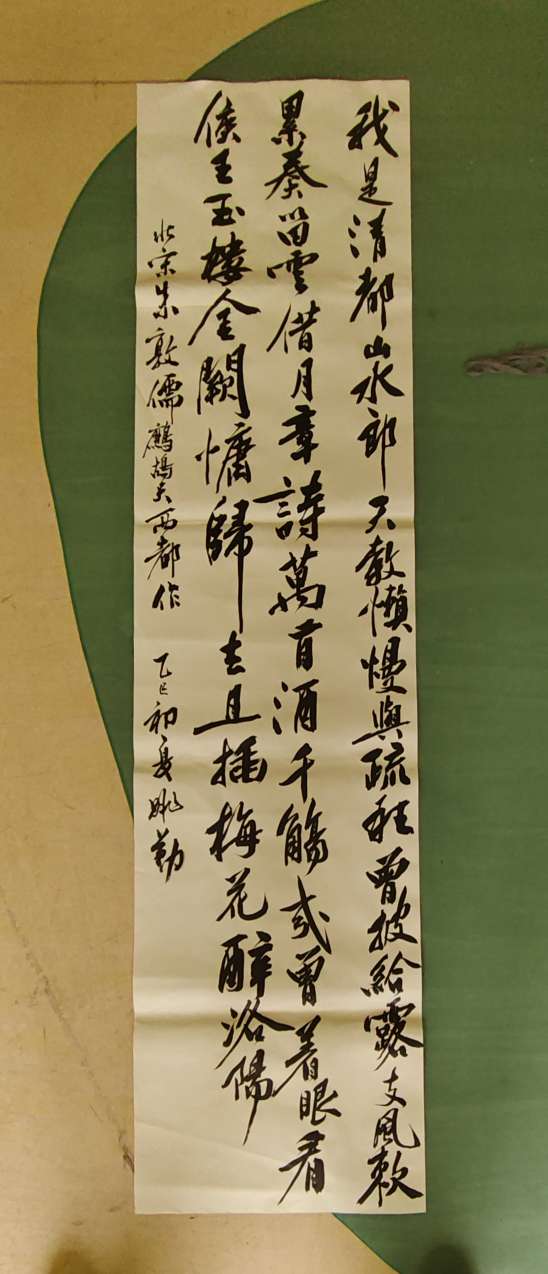 我是清都山水郎天教懶慢與疏狂曾披給露支風敕
累奏留雲借月章詩萬首酒千觴幾曾着眼看
侯王玉樓金闕慵歸去且插梅花醉洛陽
北宋朱敦儒鷓鴣天西都作 乙巳初夏姚勤